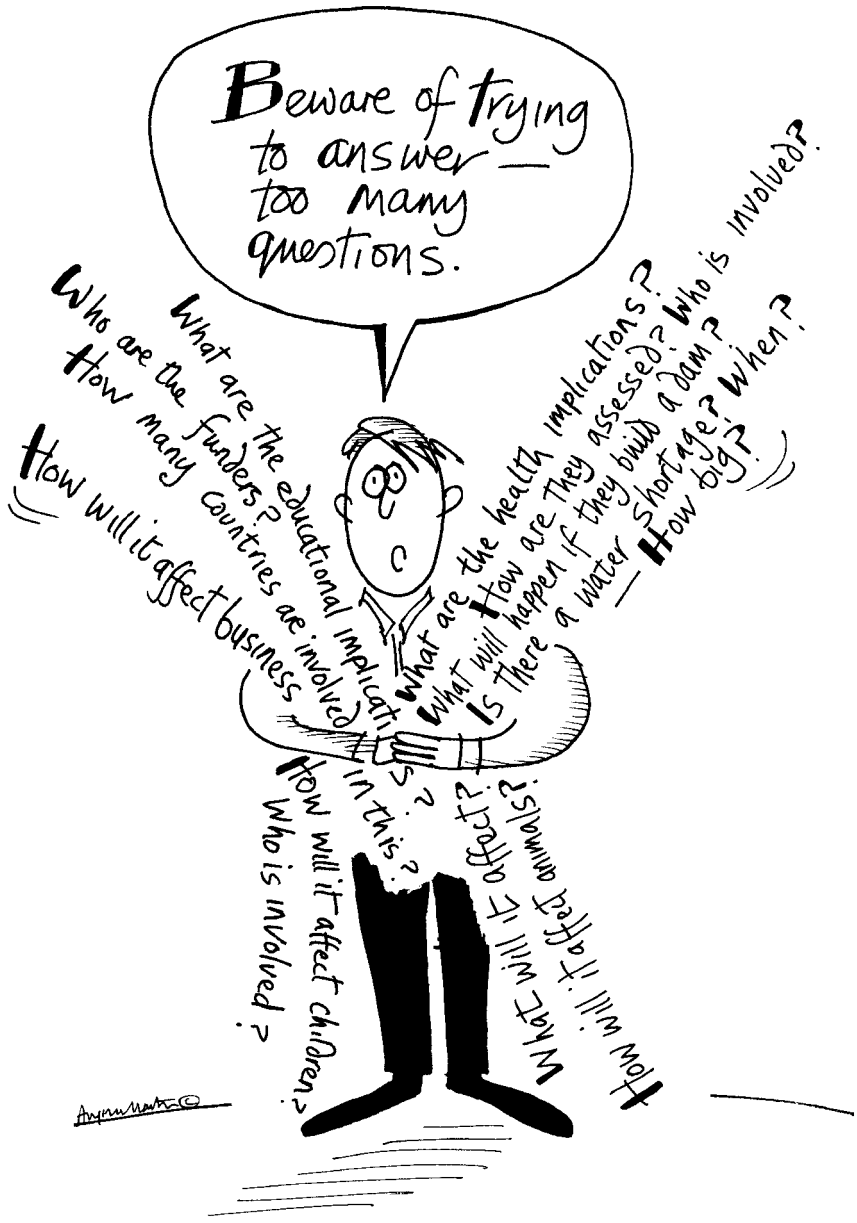 Beware of trying
to answer —
too many
questions.
What are the educational implications?
Who are the funders?
How many countries are involved in this?
How will it affect business
What are the health implications?
How are they assessed? Who is involved?
What will happen if they build a dam?
Is there a water shortage? When?
— How big?
How will it affect children?
Who is involved?
What will it affect?
How will it affect animals?
©